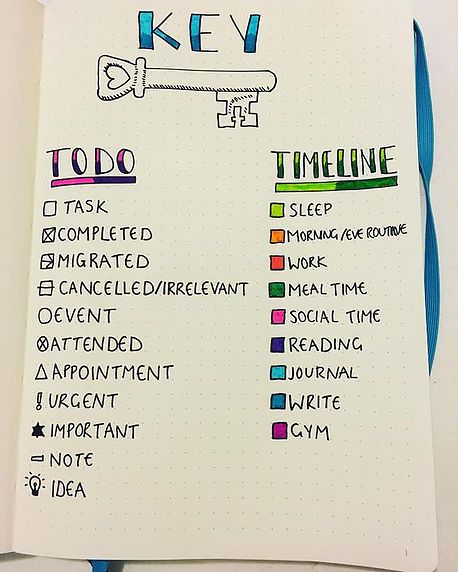 KEY
TODO
TASK
COMPLETED
MIGRATED
CANCELLED/IRRELEVANT
EVENT
ATTENDED
APPOINTMENT
URGENT
IMPORTANT
NOTE
IDEA
TIMELINE
SLEEP
MORNING/EVE ROUTINE
WORK
MEAL TIME
SOCIAL TIME
READING
JOURNAL
WRITE
GYM
1